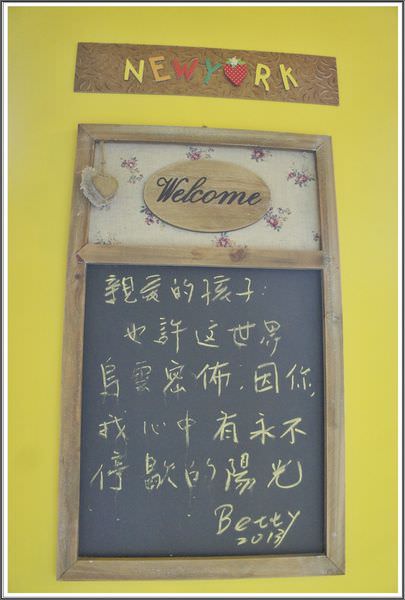 NEWYORK
Welcome
親愛的孩子:
也許这世界
烏雲密佈,因你,
我心中有永不
停歇的陽光
Betty
2013